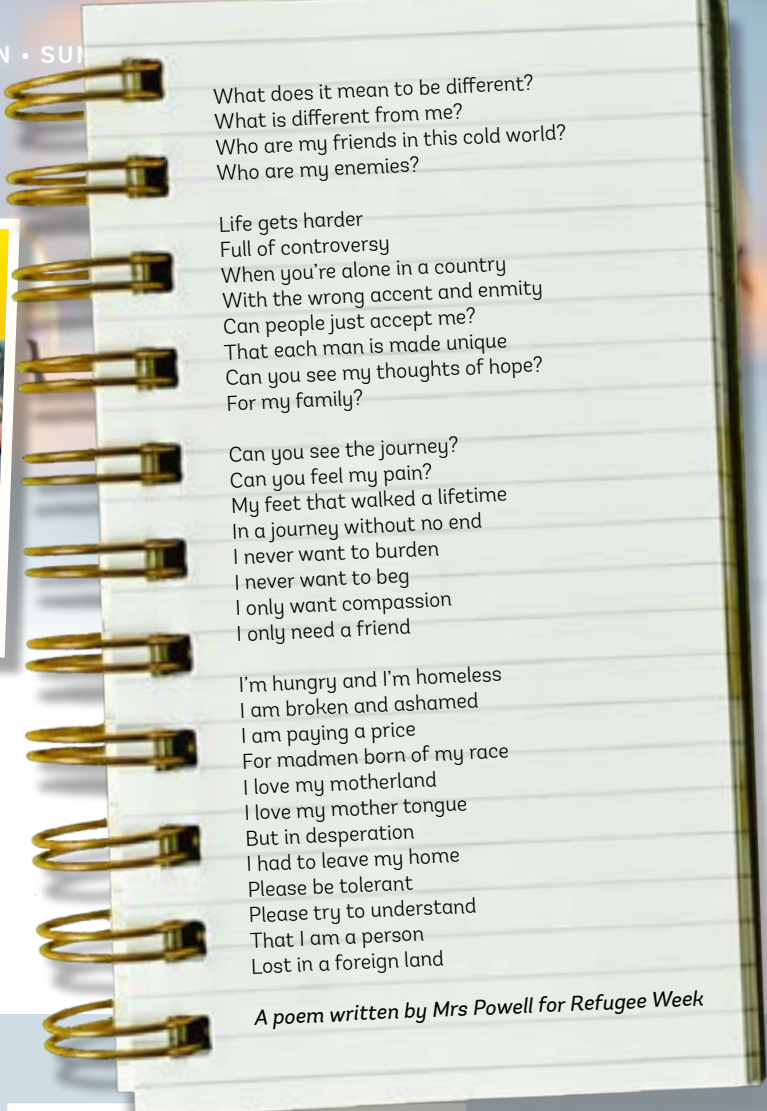 N • SUN
What does it mean to be different?
What is different from me?
Who are my friends in this cold world?
Who are my enemies?
Life gets harder
Full of controversy
When you're alone in a country
With the wrong accent and enmity
Can people just accept me?
That each man is made unique
Can you see my thoughts of hope?
For my family?
Can you see the journey?
Can you feel my pain?
My feet that walked a lifetime
In a journey without no end
I never want to burden
I never want to beg
I only want compassion
I only need a friend
I'm hungry and I'm homeless
I am broken and ashamed
I am paying a price
For madmen born of my race
I love my motherland
I love my mother tongue
But in desperation
I had to leave my home
Please be tolerant
Please try to understand
That I am a person
Lost in a foreign land
A poem written by Mrs Powell for Refugee Week